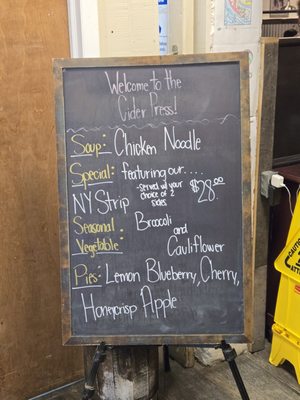 Welcome to the
Cider Press!
Soup: Chicken Noodle
Special: featuring our....
NY Strip -Served w/ your choice of 2 sides $28.00
Seasonal Vegetable: Broccoli and Cauliflower
Pies: Lemon Blueberry, Cherry,
Honeycrisp Apple